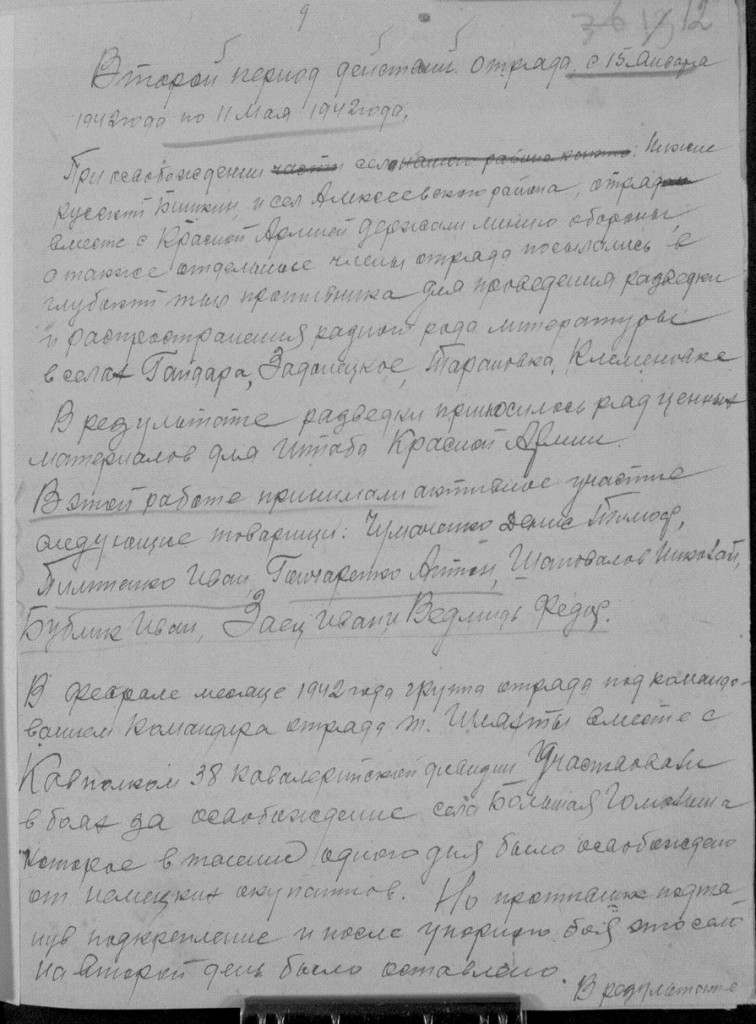 9
12
Второй период действий отряда с 15 января
1942 года по 11 Мая 1942 года.
При освобождении части села нашего района : Нижние
русский Бишкин, и сел Алексеевского района, отряд
вместе с Красной Армией держали линию обороны,
а также отдельные члены отряда посылались в
глубокий тыл противника для проведения разведки
и распространения разного рода литературы
в селах Гайдара, Задонецкое, Тарановка, Клеменовка
В результате разведки приносилось ряд ценных
материалов для Штаба Красной Армии.
В этой работе принимали активное участие
следующие товарищи: Чумаченко Денис Тимоф,
Пилипенко Иван, Гончаренко Антон, Шаповалов Николай,
Бублик Иван, Заец Иван, и Ведмидь Федор.
В феврале месяце 1942 года группа отряда под командо-
ванием командира отряда т. Шляхты вместе с
Кавполком 38 кавалерийской дивизии Участвовали
в боях за освобождение села Большая Гомольша
которое в течение одного дня было освобождено
от немецких окупантов. Но противник подтя-
нув подкрепление и после упорного боя это село
на второй день было оставлено.
В результате